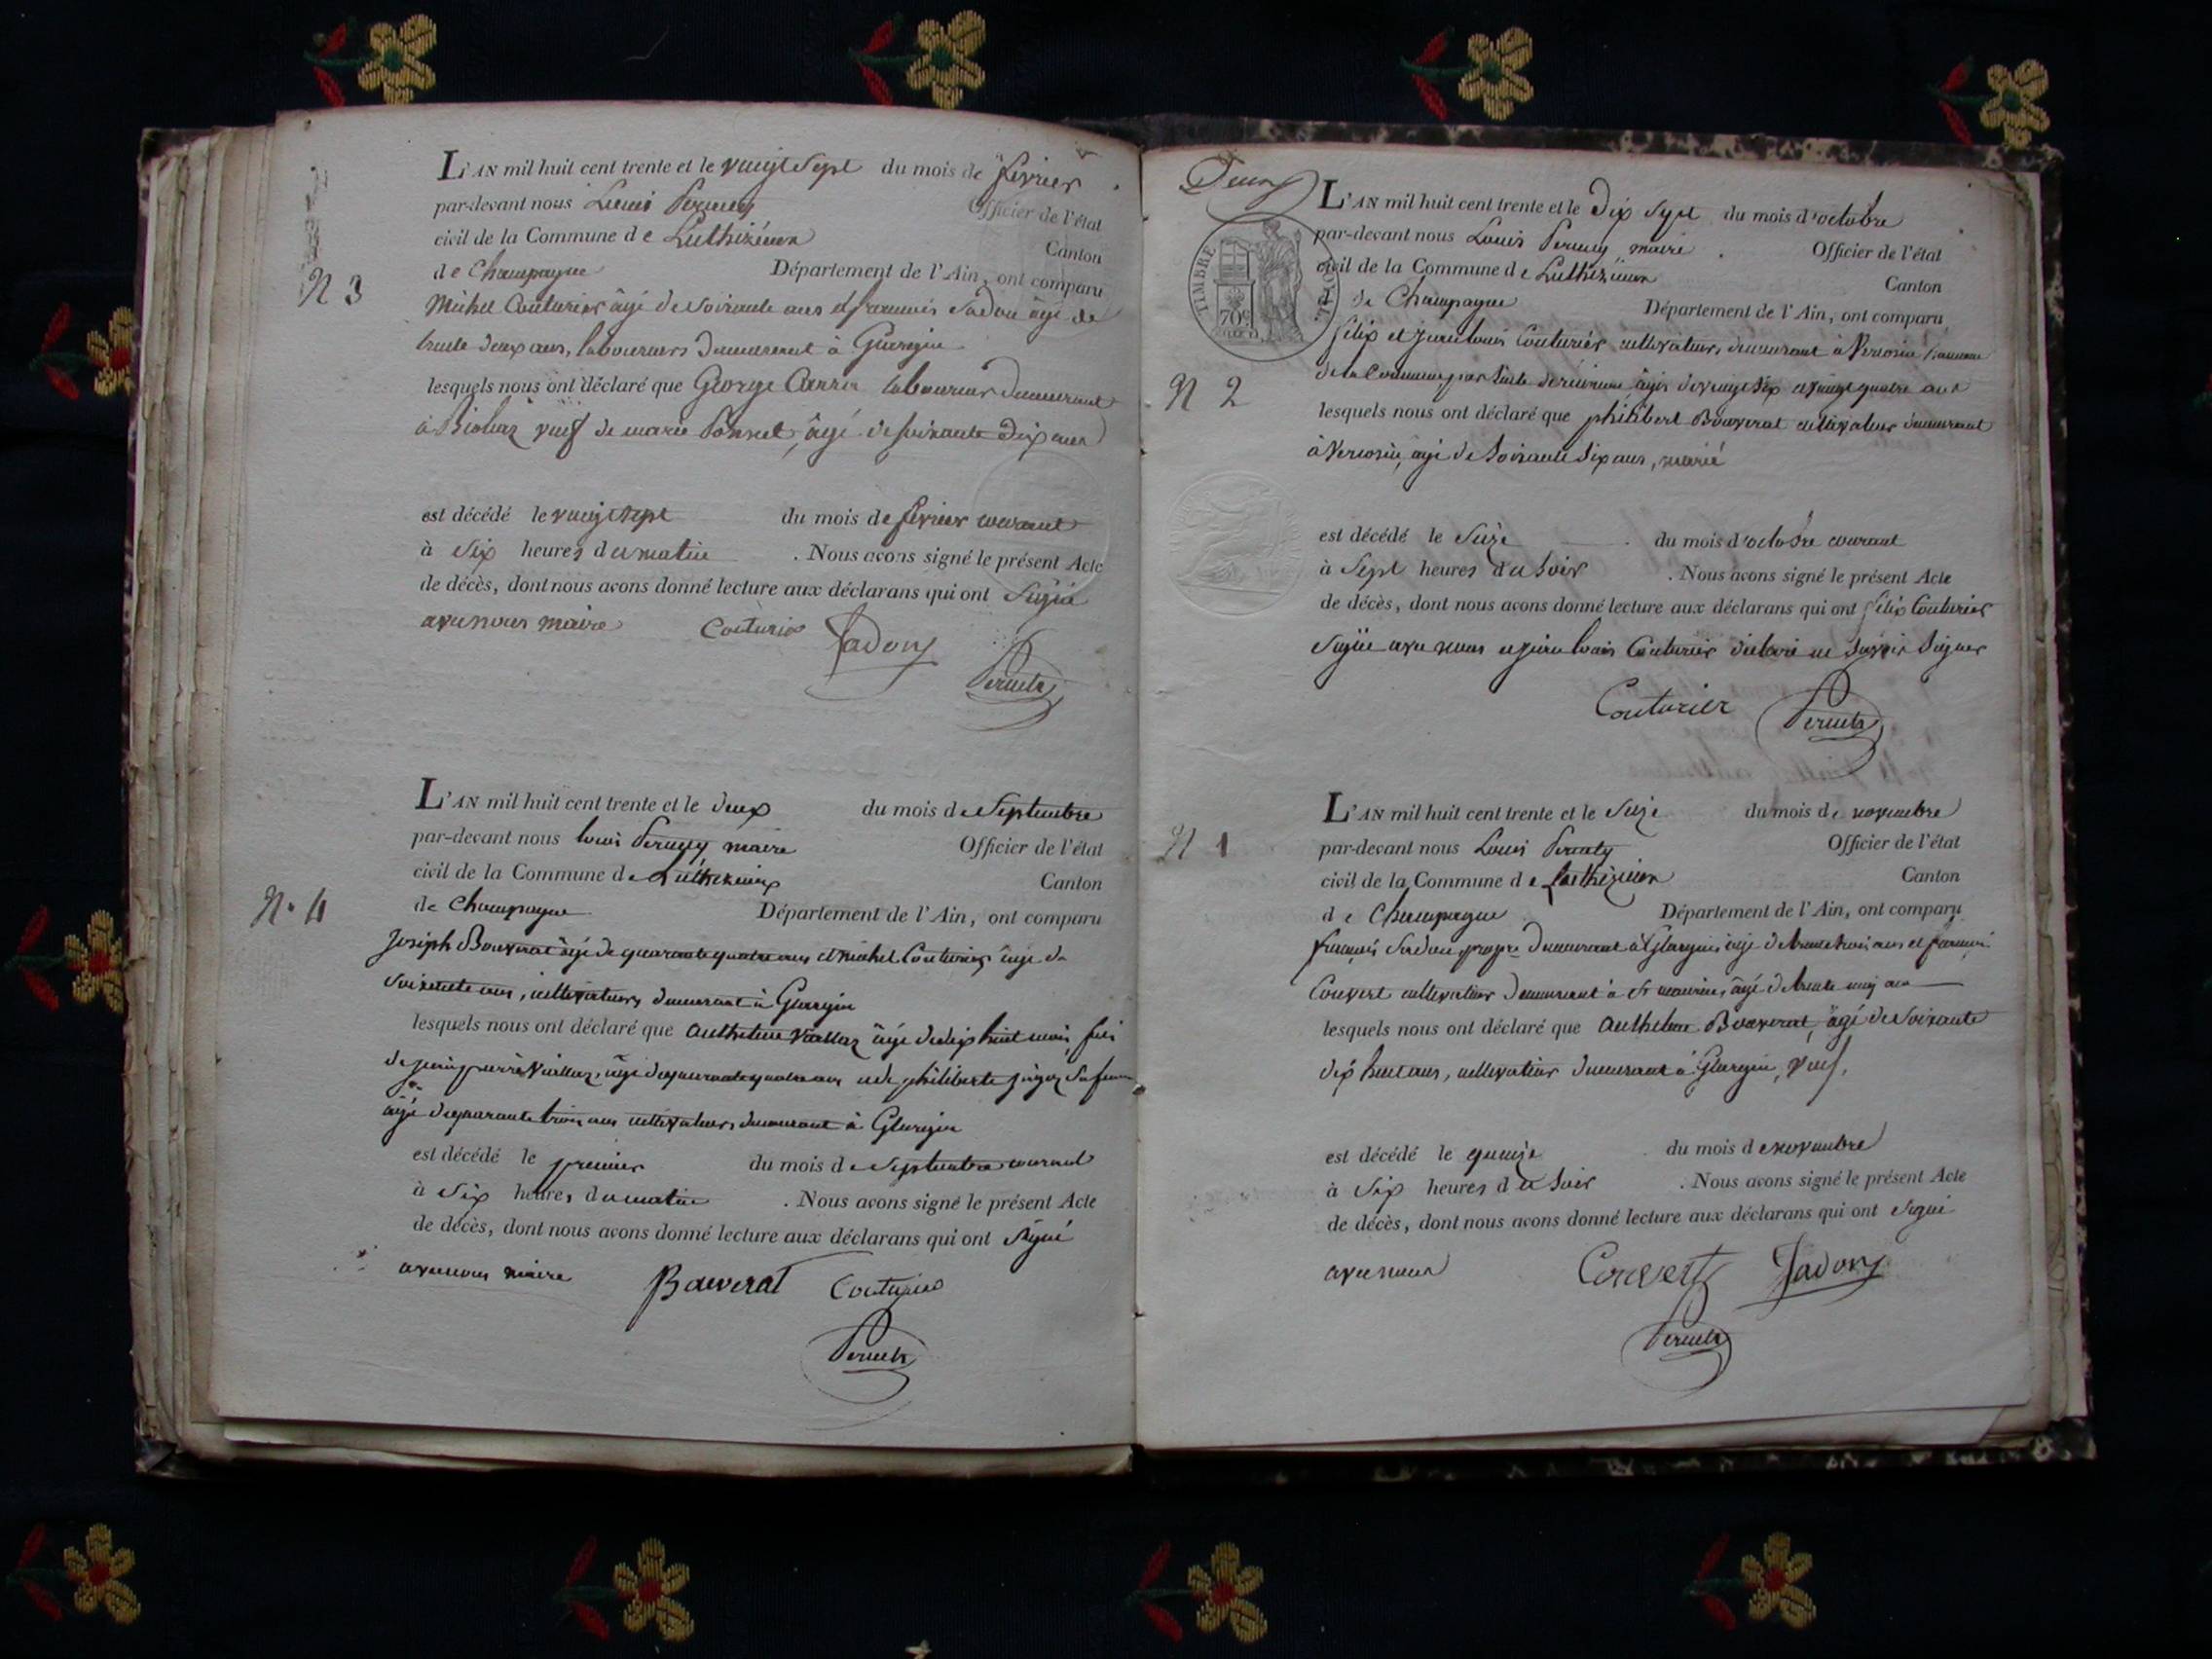 L'AN mil huit cent trente et le vingt sept du mois de février
par-devant nous Louis Officier de l'état
civil de la Commune de Luthézieux Canton
de Champagne Département de l'Ain, ont comparu
N 3
Michel Couturier âgé de soixante ans et françois Jadon âgé de
trente deux ans, laboureurs demeurant à
lesquels nous ont déclaré que George laboureur demeurant
à veuf de marie âgé de soixante dix ans
est décédé le vingt sept du mois de février courant
à Six heures du matin . Nous avons signé le présent Acte
de décès, dont nous avons donné lecture aux déclarans qui ont Signé
avec nous maire Couturier Jadon
L'AN mil huit cent trente et le deux du mois de Septembre
par-devant nous louis maire Officier de l'état
civil de la Commune de Luthézieux Canton
N. 4
de Champagne Département de l'Ain, ont comparu
Joseph Bouverat âgé de quarante quatre ans et michel Couturier âgé de
soixante ans, cultivateurs demeurant à
lesquels nous ont déclaré que Anthelme âgé de dix huit mois, fils
de âgé de quarante quatre ans et de philiberte sa femme
âgé de quarante trois ans cultivateurs demeurant à
est décédé le premier du mois de Septembre courant
à Six heures du matin . Nous avons signé le présent Acte
de décès, dont nous avons donné lecture aux déclarans qui ont Signé
avec nous maire Bouverat Couturier
Deux
L'AN mil huit cent trente et le Dix Sept du mois d'octobre
par-devant nous Louis maire Officier de l'état
civil de la Commune de Luthézieux Canton
TIMBRE ROYAL
70c
de Champagne Département de l'Ain, ont comparu
félix et jean louis Couturier cultivateurs, demeurant à
de la Commune par suite de réunion âgés de vingt six et vingt quatre ans
N 2
lesquels nous ont déclaré que philibert Bouverat cultivateur demeurant
à âgé de Soixante Six ans, marié
est décédé le Seize du mois d'octobre courant
à Sept heures du Soir . Nous avons signé le présent Acte
de décès, dont nous avons donné lecture aux déclarans qui ont félix Couturier
Signé avec nous et jean louis Couturier déclaré ne Savoir Signer
Couturier
L'AN mil huit cent trente et le Seize du mois de novembre
N 1
par-devant nous Louis Officier de l'état
civil de la Commune de Luthézieux Canton
de Champagne Département de l'Ain, ont comparu
françois Jadon demeurant à âgé de trente trois ans et françois
Couvert cultivateur demeurant à St maurice, âgé de trente cinq ans
lesquels nous ont déclaré que Anthelme Bouverat, âgé de Soixante
dix huit ans, cultivateur demeurant à veuf,
est décédé le quinze du mois de novembre
à Six heures du Soir . Nous avons signé le présent Acte
de décès, dont nous avons donné lecture aux déclarans qui ont Signé
avec nous Couvert Jadon